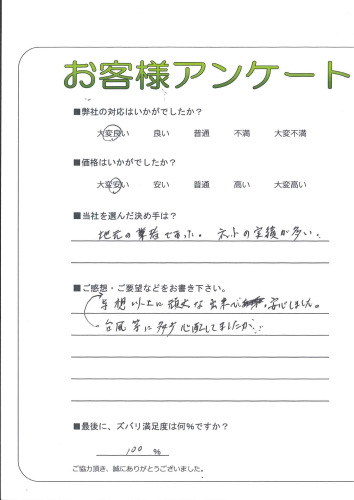 お客様アンケート
■弊社の対応はいかがでしたか？
大変良い 良い 普通 不満 大変不満
■価格はいかがでしたか？
大変安い 安い 普通 高い 大変高い
■当社を選んだ決め手は？
地元の業者であった。ネットの実績が多い。
■ご感想・ご要望などをお書き下さい。
予想以上に頑丈な出来で 安心しました。
台風等に 心配してましたが
■最後に、ズバリ満足度は何％ですか？
100 ％
ご協力頂き、誠にありがとうございました。